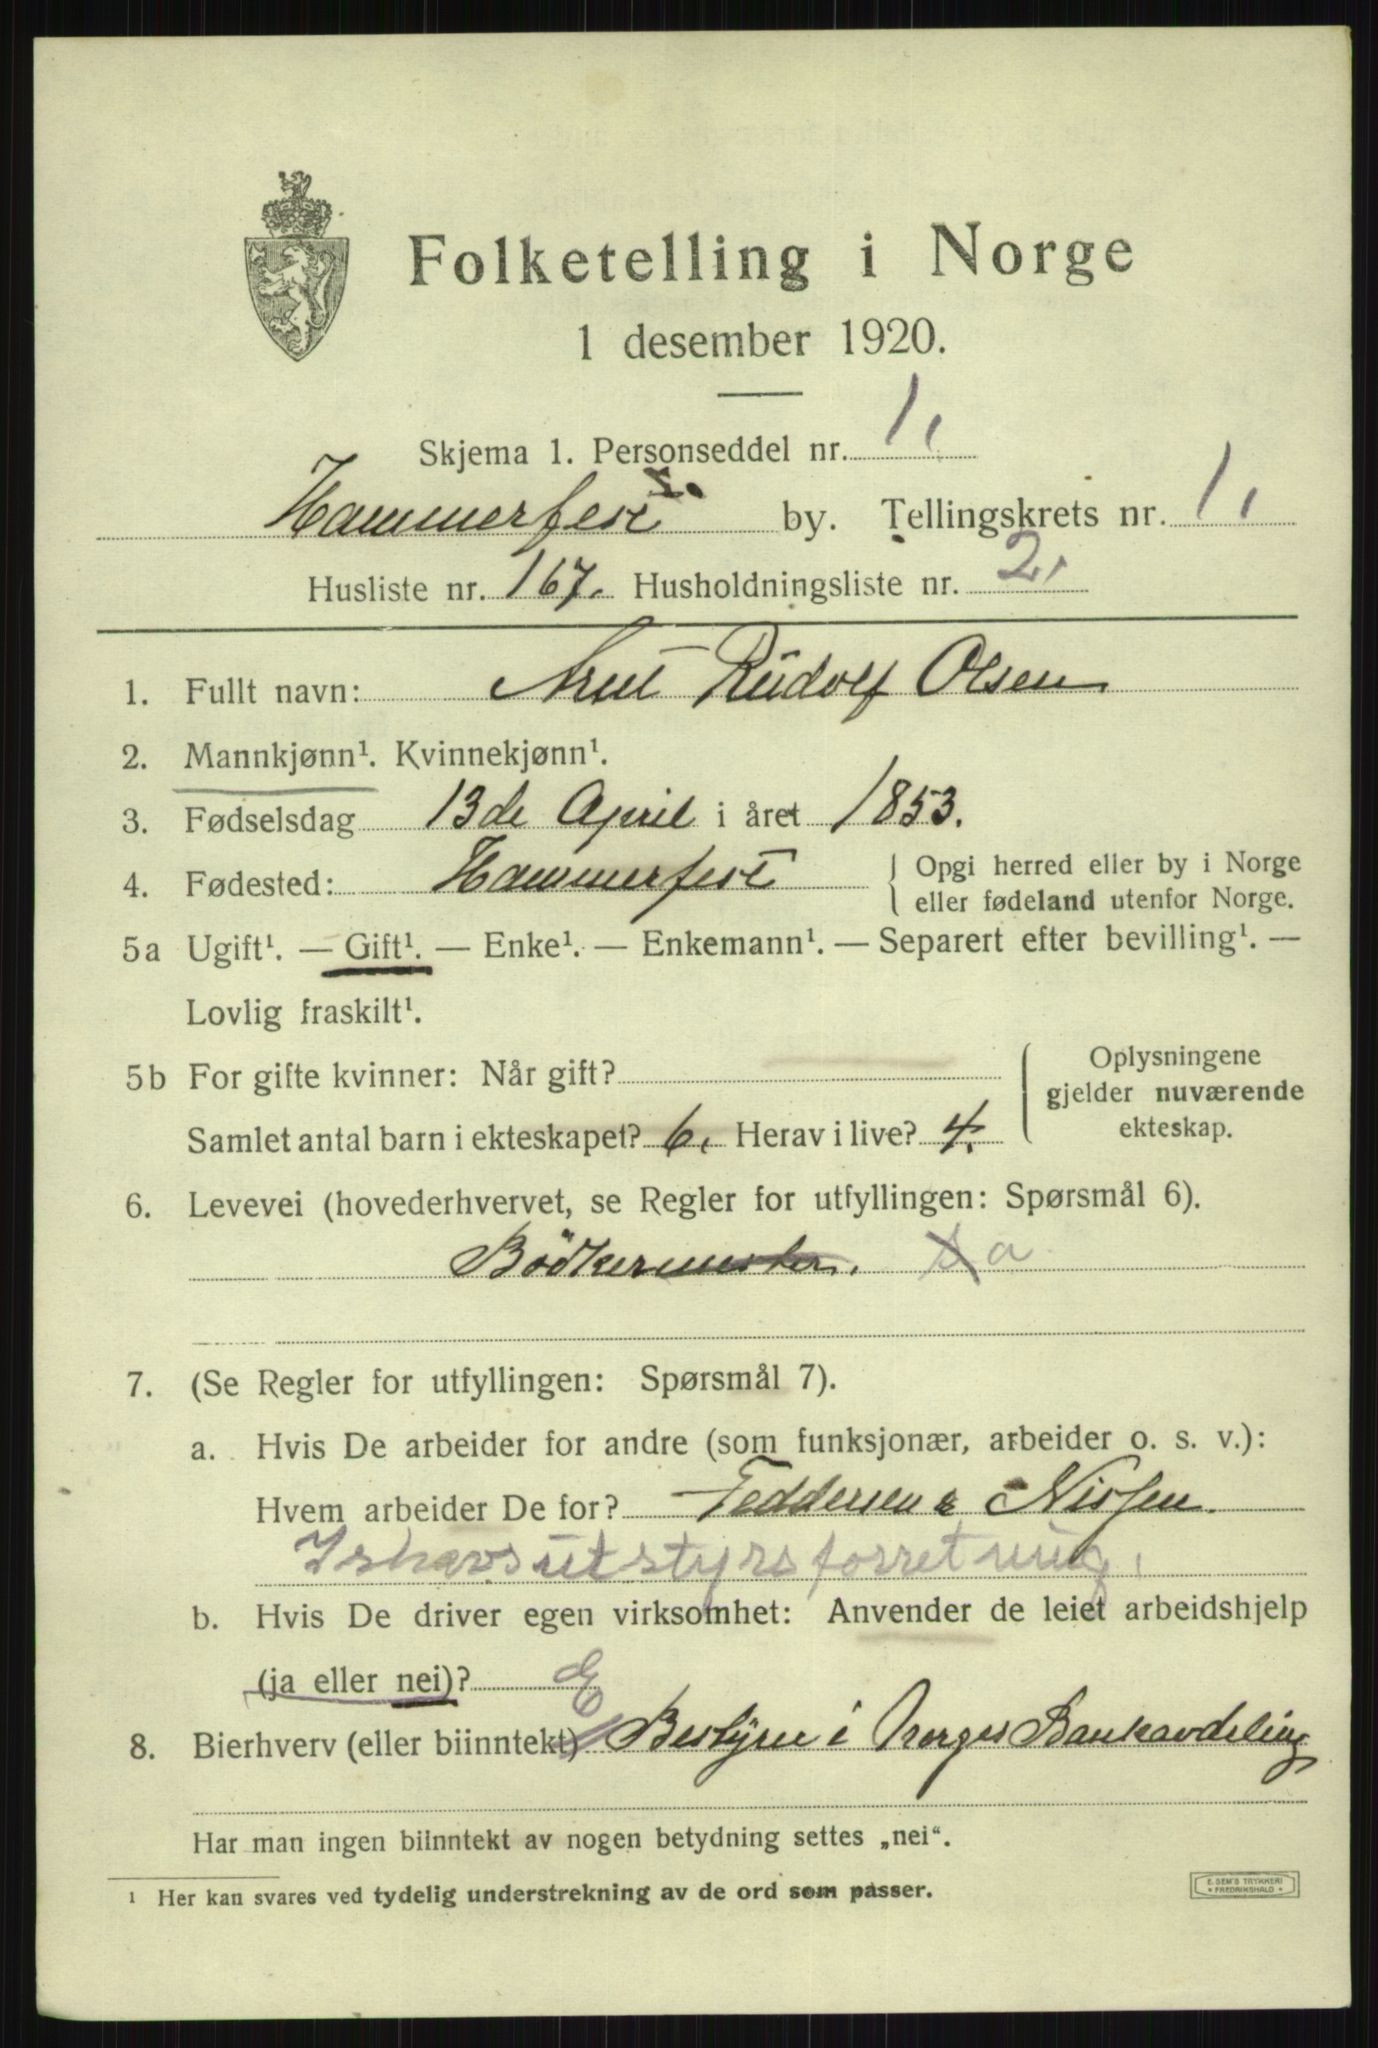 Folketelling i Norge
1 desember 1920.
Skjema 1. Personseddel nr. 1,
Hammerfest by. Tellingskrets nr. 1,
Husliste nr. 167. Husholdningsliste nr. 2,
1. Fullt navn: Rudolf Olsen
2. Mannkjønn¹. Kvinnekjønn¹.
3. Fødselsdag 13de April i året 1853.
4. Fødested: Hammerfest { Opgi herred eller by i Norge
eller fødeland utenfor Norge.
5a Ugift¹. — Gift¹. — Enke¹. — Enkemann¹. — Separert efter bevilling¹. —
Lovlig fraskilt¹.
5b For gifte kvinner: Når gift?
Samlet antal barn i ekteskapet? 6. Herav i live? 4.
{ Oplysningene
gjelder nuværende
ekteskap.
6. Levevei (hovederhvervet, se Regler for utfyllingen: Spørsmål 6).
Bödkermester. a
7. (Se Regler for utfyllingen: Spørsmål 7).
a. Hvis De arbeider for andre (som funksjonær, arbeider o. s. v.):
Hvem arbeider De for? Feddersen & Nissen.
Ishavsutstyrsforretning.
b. Hvis De driver egen virksomhet: Anvender de leiet arbeidshjelp
(ja eller nei)? E
8. Bierhverv (eller biinntekt) Bestyrer i Norges Bankavdeling
Har man ingen biinntekt av nogen betydning settes „nei“.
¹ Her kan svares ved tydelig understrekning av de ord som passer.
E. SEM'S TRYKKERI
• FREDRIKSHALD •